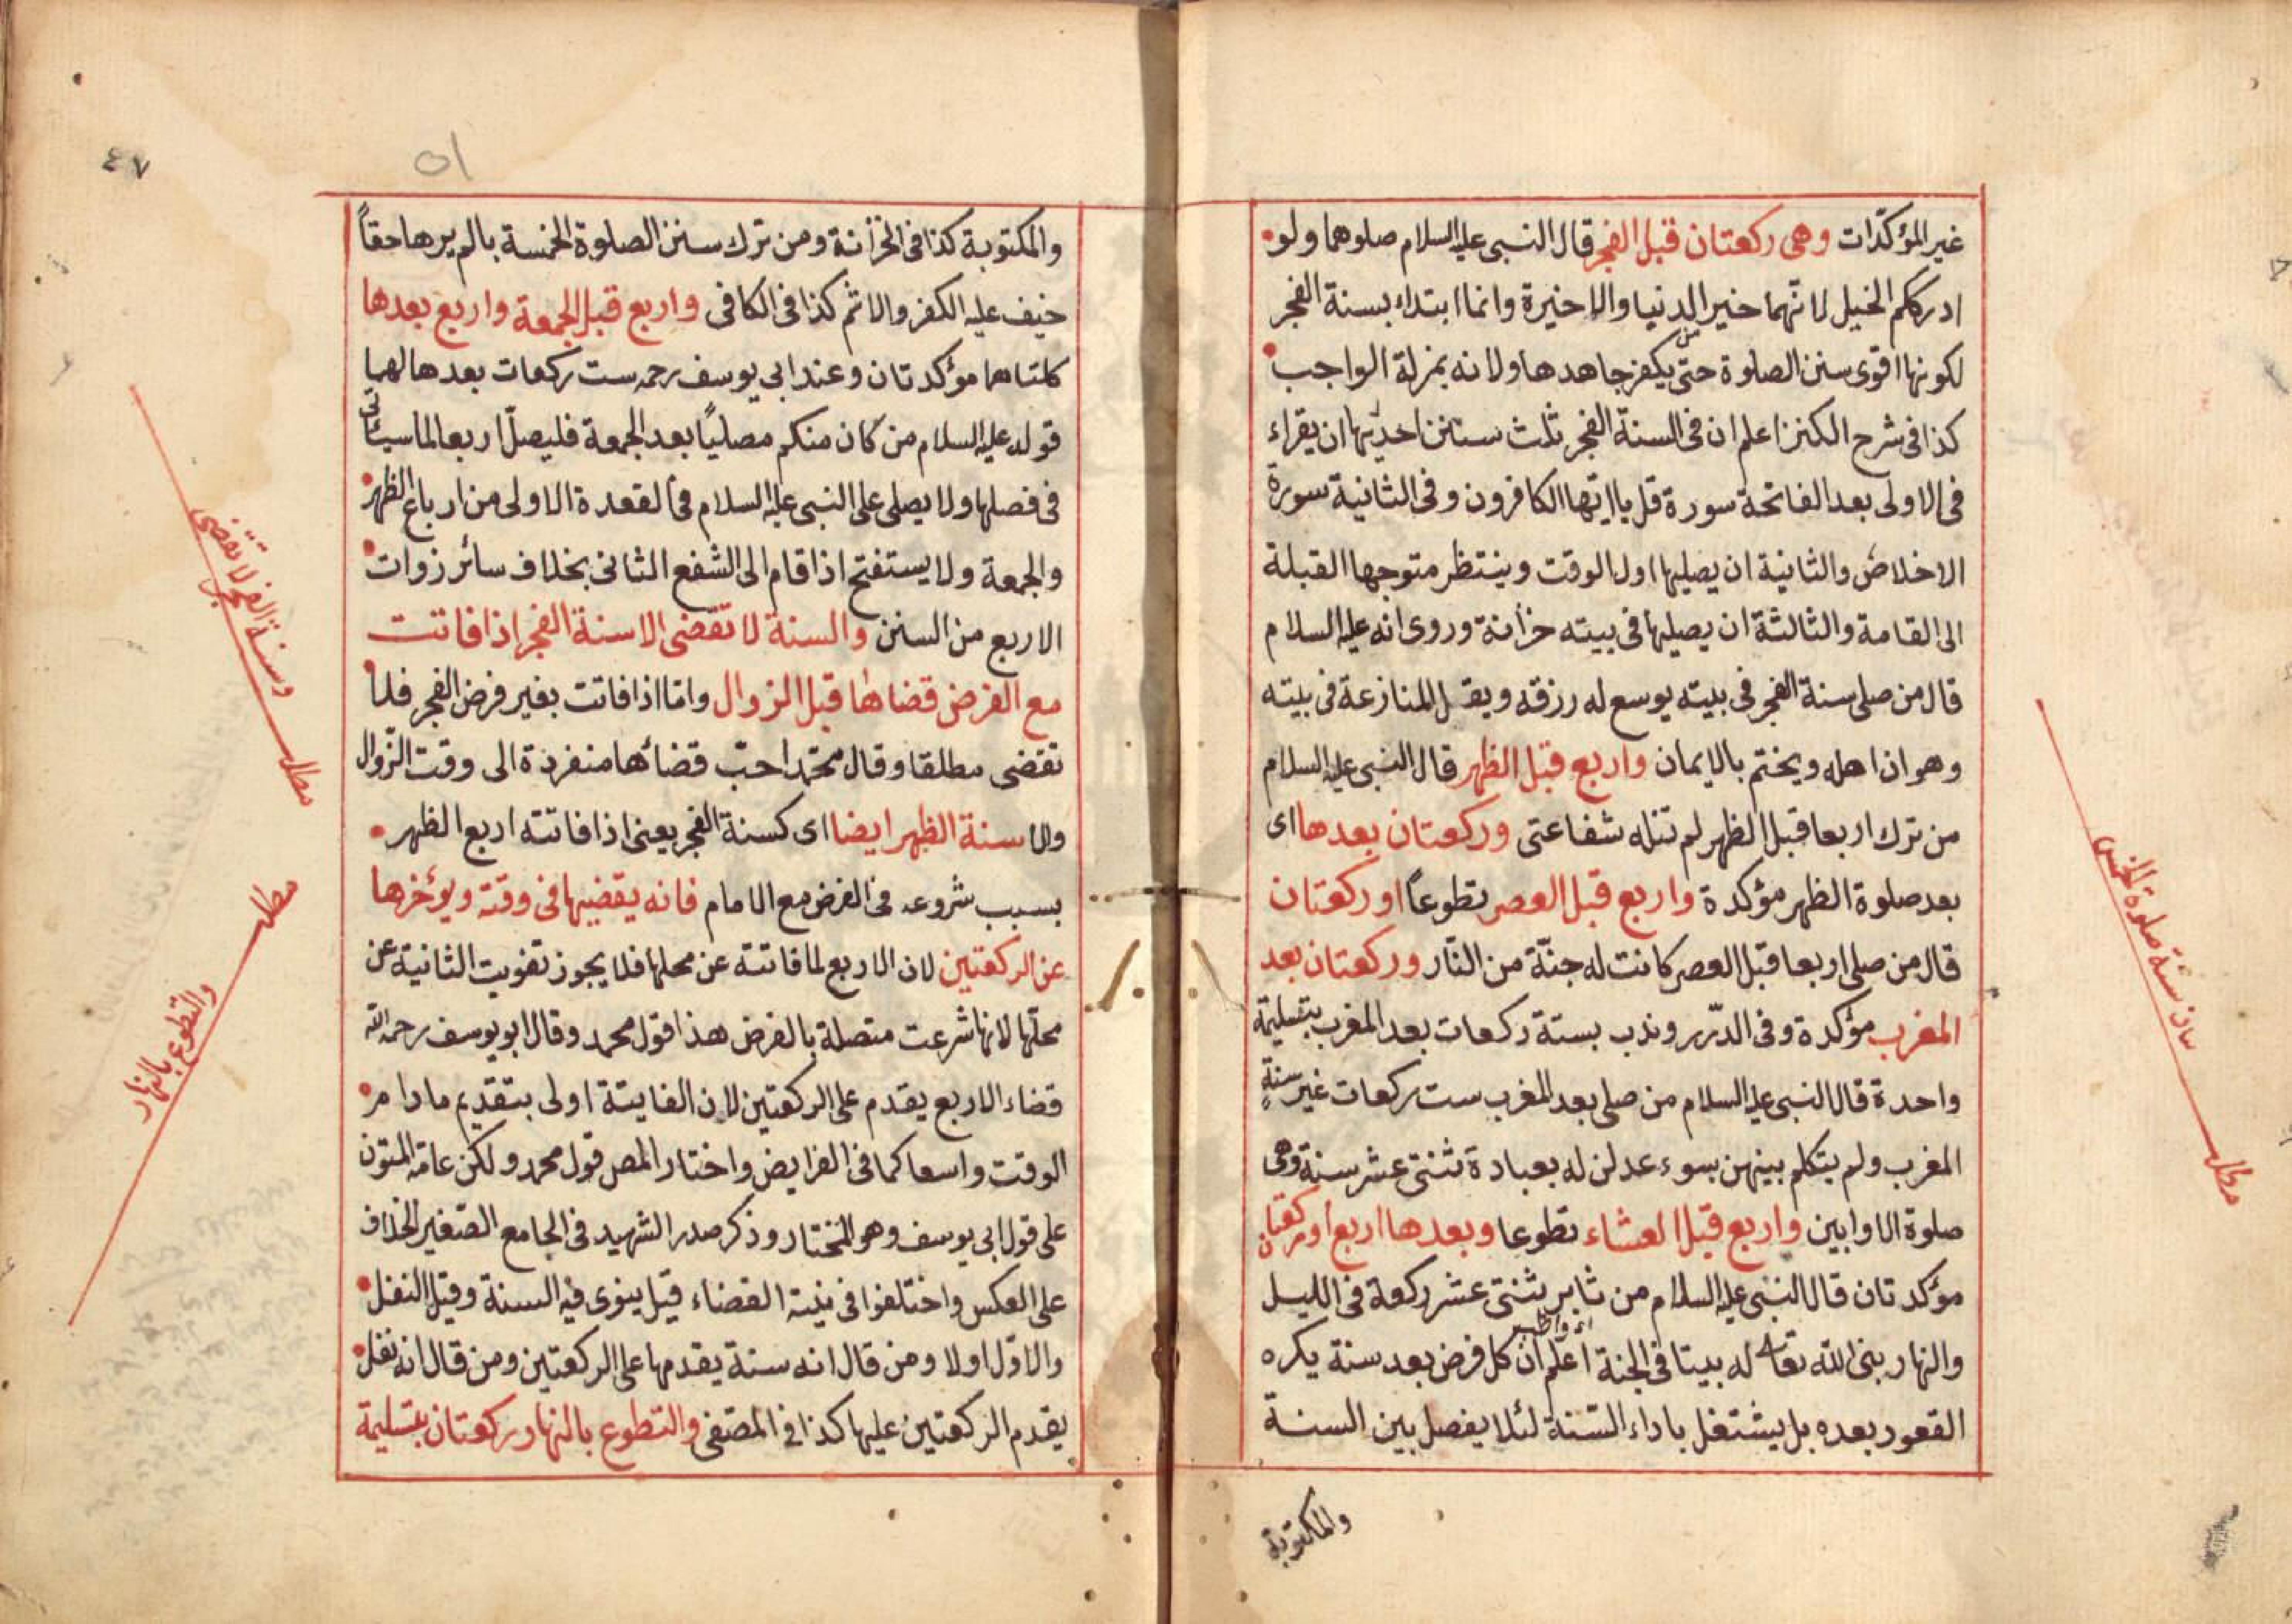 غير المؤكدّات وهى ركعتان قبل الفجر قال النبى عليه السلام صلوهما ولو
ادرككم الخيل لانّهما خير الدنيا والاخيرة وانما ابتداء بسنة الفجر
لكونها اقوى سنن الصلوة حتى يكفر جاهدها ولانه بمنزلة الواجب
كذا فى شرح الكنز اعلم ان فى السنة الفجر ثلث سنن احديها ان يقراء
فى الاولى بعد الفاتحة سورة قل يا ايّها الكافرون وفى الثانية سورة
الاخلاص والثانية ان يصليها اول الوقت وينتظر متوجها القبلة
الى القامة والثالثة ان يصليها فى بيته خزانة وروى انه عليه السلام
قال من صلى سنة الفجر فى بيته يوسع له رزقه ويقل المنازعة فى بيته
وهو ان اهله ويختم بالايمان واربع قبل الظهر قال النبى عليه السلام
من ترك اربعا قبل الظهر لم تنله شفاعتى وركعتان بعدها اى
بعد صلوة الظهر مؤكدة واربع قبل العصر تطوعاً او ركعتان
قال من صلى اربعا قبل العصر كانت له جنّة من النّار وركعتان بعد
المغرب مؤكدة وفى الدّرر وندب بستة ركعات بعد المغرب بتسليمة
واحدة قال النبى عليه السلام من صلى بعد المغرب ست ركعات غير سنةِ
المغرب ولم يتكلم بينهن بسوء عدلن له بعبادة ثنتى عشر سنة وهى
صلوة الاوابين واربع قبل العشاء تطوعا وبعدها اربع او ركعتان
مؤكدتان قال النبى عليه السلام من ثابر ثنتى عشر ركعة فى الليل
اى واظب
والنهار بنى الله تعالى له بيتا فى الجنة اعلم ان كل فرض بعد سنة يكره
القعود بعده بل يشتغل باداء السّنة لئلا يفصل بين السنة
والمكتوبة
مطلب
بيان سنة صلوة الخمس
٤٧
٥١
والمكتوبة كذا فى الخزانة ومن ترك سنن الصلوة الخمسة بالم يرها حقاً
خيف عليه الكفر والاثم كذا فى الكافى واربع قبل الجمعة واربع بعدها
كلتاهما مؤكدتان وعند ابى يوسف رحمه ست ركعات بعدها لهما
قوله عليه السلام من كان منكم مصلياً بعد الجمعة فليصلّ اربعا لما سيأتى
فى فصلها ولا يصلى على النبى عليه السلام فى القعدة الاولى من ارباع الظهر
والجمعة ولا يستفتح اذا قام الى الشفع الثانى بخلاف سائر زوات
الاربع من السنن والسنة لا تقضى الا سنة الفجر اذا فاتت
مع الفرض قضاها قبل الزوال وامّا اذا فاتت بغير فرض الفجر فلا
تقضى مطلقا وقال محمّد احبّ قضائها منفردة الى وقت الزّوال
والا سنة الظهر ايضا اى كسنة الفجر يعنى اذا فاتته اربع الظهر
بسبب شروعه فى الفرض مع الامام فانه يقضيها فى وقته ويؤخرها
عن الركعتين لان الاربع لما فاتته عن محلها فلا يجوز تفويت الثانية عن
محلّها لانها شرعت متصلة بالفرض هذا قول محمد وقال ابو يوسف رحمه الله
قضاء الاربع يقدم على الركعتين لان الفايتة اولى بتقديم مادام
الوقت واسعا كما فى الفرايض واختار المص قول محمد ولكن عامة المتون
على قول ابى يوسف وهو المختار وذكر صدر الشهيد فى الجامع الصّغير الخلاف
على العكس واختلفوا فى نيّة القضاء قيل ينوى فيه السنة وقيل النفل
والاوّل اولا ومن قال انه سنة يقدمها على الركعتين ومن قال انه نفل
يقدم الركعتين عليها كذا فى المصّفى والتطوع بالنهار ركعتان بتسليمة
مطلب
وسنة الفجر لا تقضى
مطلب
والتطوع بالنهار